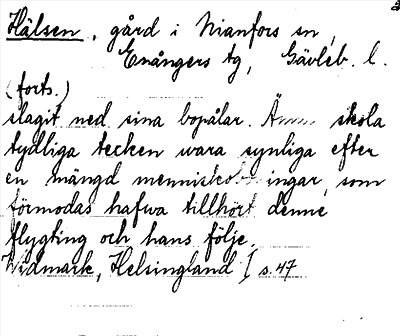 Hälsen, gård i Nianfors sn,
Enångers tg, Gävleb. l.
(forts.)
slagit ned sina bopålar. Ännu skola
tydliga tecken wara synliga efter
en mängd menniskobo ingar, som
förmodas hafwa tillhört denne
flygting och hans följe.
Widmark, Helsingland I s. 47